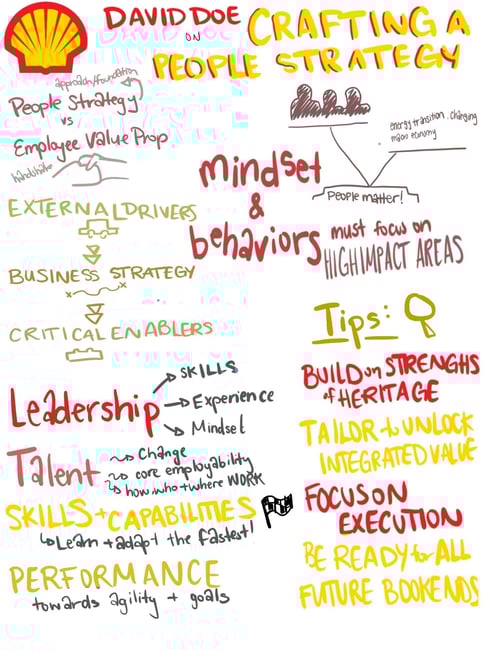 DAVID DOE
ON
CRAFTING A
PEOPLE STRATEGY
approach/foundation
People Strategy
vs
Employee Value Prop
handshake
energy transition, changing
macro economy
People matter!
mindset
&
behaviors
must focus on
HIGH IMPACT AREAS
EXTERNAL DRIVERS
BUSINESS STRATEGY
CRITICAL ENABLERS
Leadership
SKILLS
Experience
Mindset
Talent
Change
core employability
how who + where WORK
SKILLS + CAPABILITIES
Learn + adapt the fastest!
PERFORMANCE
towards agility + goals
Tips:
BUILD on STRENGHS
of HERITAGE
TAILOR to UNLOCK
INTEGRATED VALUE
FOCUS ON
EXECUTION
BE READY for ALL
FUTURE BOOKENDS